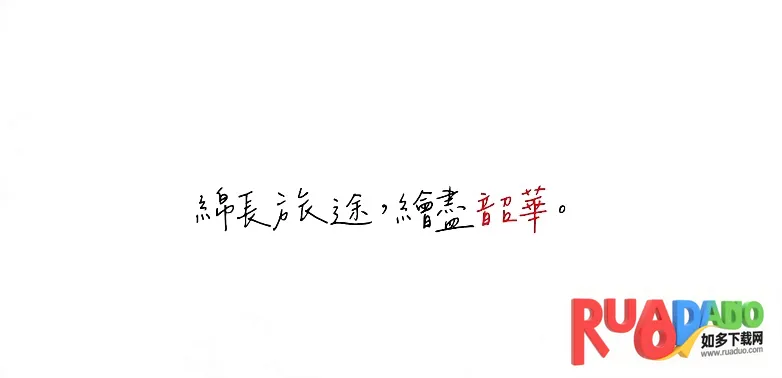 綿長旅途，繪盡韶華。
RUADADO
如多下载网
www.ruaduo.com